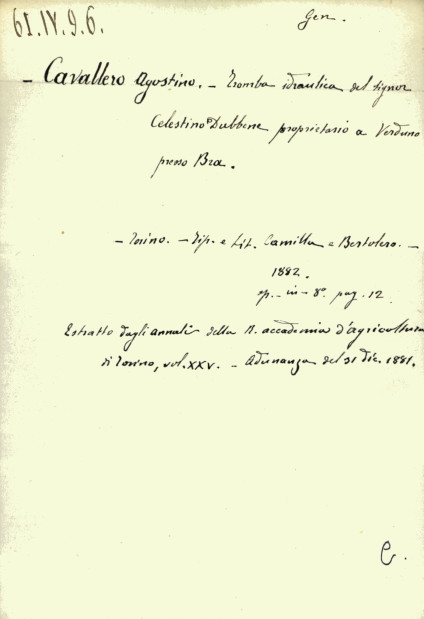 61.IV.9.6.
Gen.
- Cavallero Agostino. - Tromba idraulica del signor
Celestino Dubbene proprietario a Verduno
presso Bra.
- Torino. - Tip. e Lit. Camilla e Bertolero. -
1882.
op. - in - 8° pag. 12.
Estratto dagli annali della R. accademia d'agricoltura
di Torino, vol. XXV. - Adunanza del 31 dic. 1881.
C.